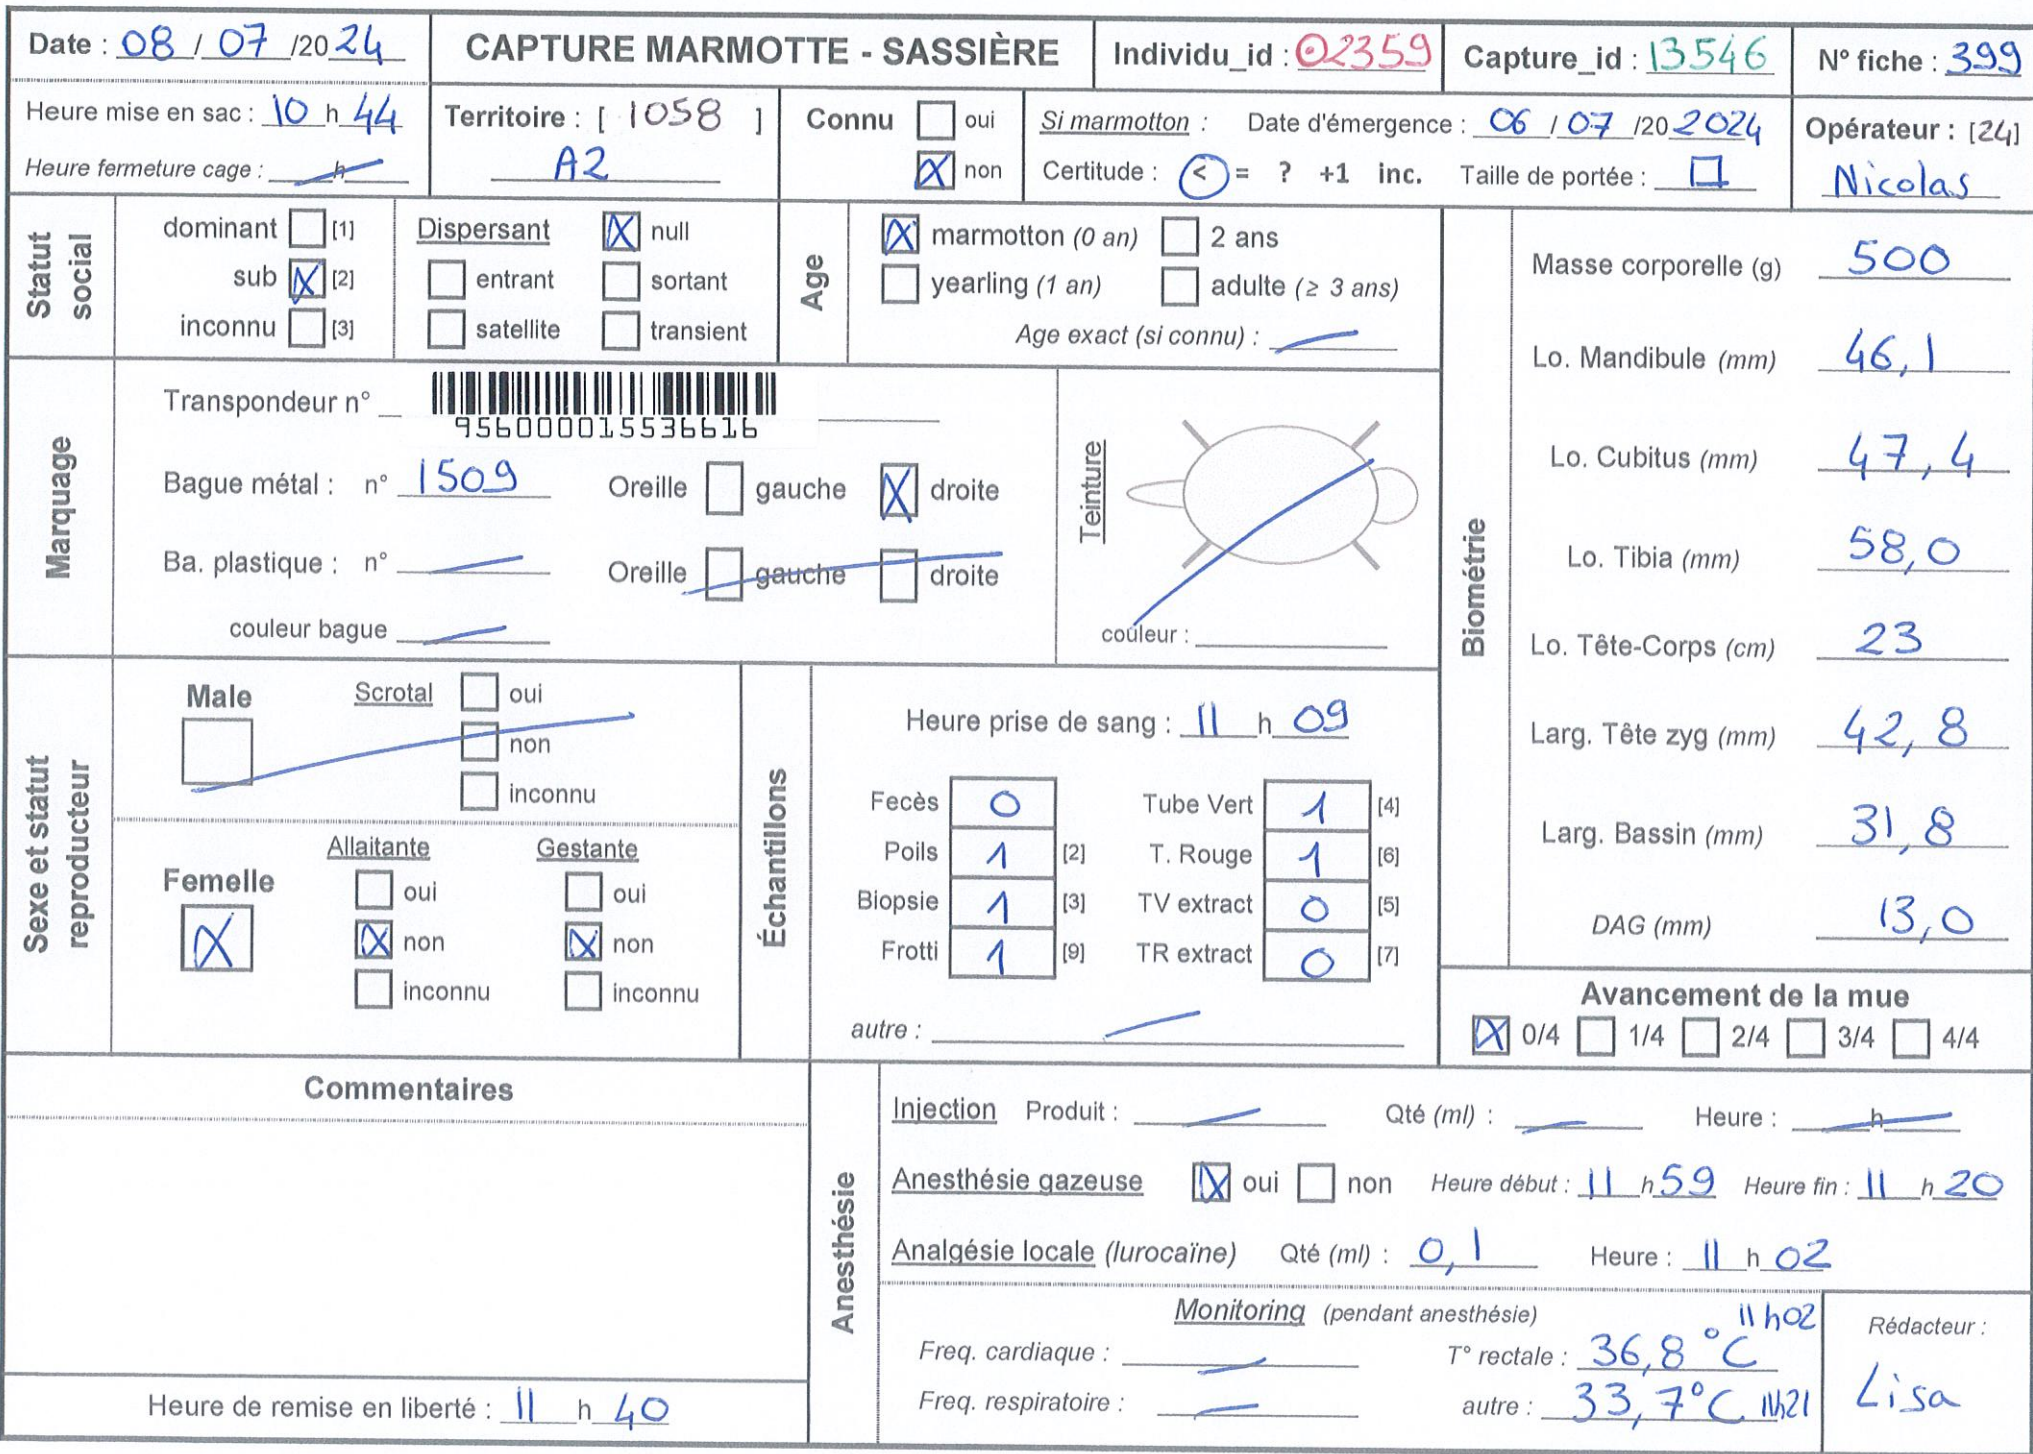 Date : 08 / 07 /20 24
CAPTURE MARMOTTE - SASSIÈRE
Individu_id : 02359
Capture_id : 13546
N° fiche : 399
Heure mise en sac : 10 h 44
Heure fermeture cage : h
Territoire : [ 1058 ]
A2
Connu oui
non
Si marmotton : Date d'émergence : 06 / 07 /20 2024
Certitude : < = ? +1 inc. Taille de portée :
Opérateur : [24]
Nicolas
Statut social
dominant [1]
sub [2]
inconnu [3]
Dispersant null
entrant sortant
satellite transient
Age
marmotton (0 an) 2 ans
yearling (1 an) adulte (≥ 3 ans)
Age exact (si connu) :
Marquage
Transpondeur n°
956000015536616
Bague métal : n° 1509 Oreille gauche droite
Ba. plastique : n° Oreille gauche droite
couleur bague
Teinture
couleur :
Biométrie
Masse corporelle (g) 500
Lo. Mandibule (mm) 46,1
Lo. Cubitus (mm) 47,4
Lo. Tibia (mm) 58,0
Lo. Tête-Corps (cm) 23
Larg. Tête zyg (mm) 42,8
Larg. Bassin (mm) 31,8
DAG (mm) 13,0
Sexe et statut reproducteur
Male Scrotal oui
non
inconnu
Femelle
Allaitante Gestante
oui oui
non non
inconnu inconnu
Échantillons
Heure prise de sang : 11 h 09
Fecès 0 Tube Vert 1 [4]
Poils 1 [2] T. Rouge 1 [6]
Biopsie 1 [3] TV extract 0 [5]
Frotti 1 [9] TR extract 0 [7]
autre :
Avancement de la mue
0/4 1/4 2/4 3/4 4/4
Commentaires
Heure de remise en liberté : 11 h 40
Anesthésie
Injection Produit : Qté (ml) : Heure : h
Anesthésie gazeuse oui non Heure début : 11 h 59 Heure fin : 11 h 20
Analgésie locale (lurocaïne) Qté (ml) : 0,1 Heure : 11 h 02
Monitoring (pendant anesthésie) 11h02
Freq. cardiaque : T° rectale : 36,8 °C
Freq. respiratoire : autre : 33,7°C 11h21
Rédacteur :
Lisa